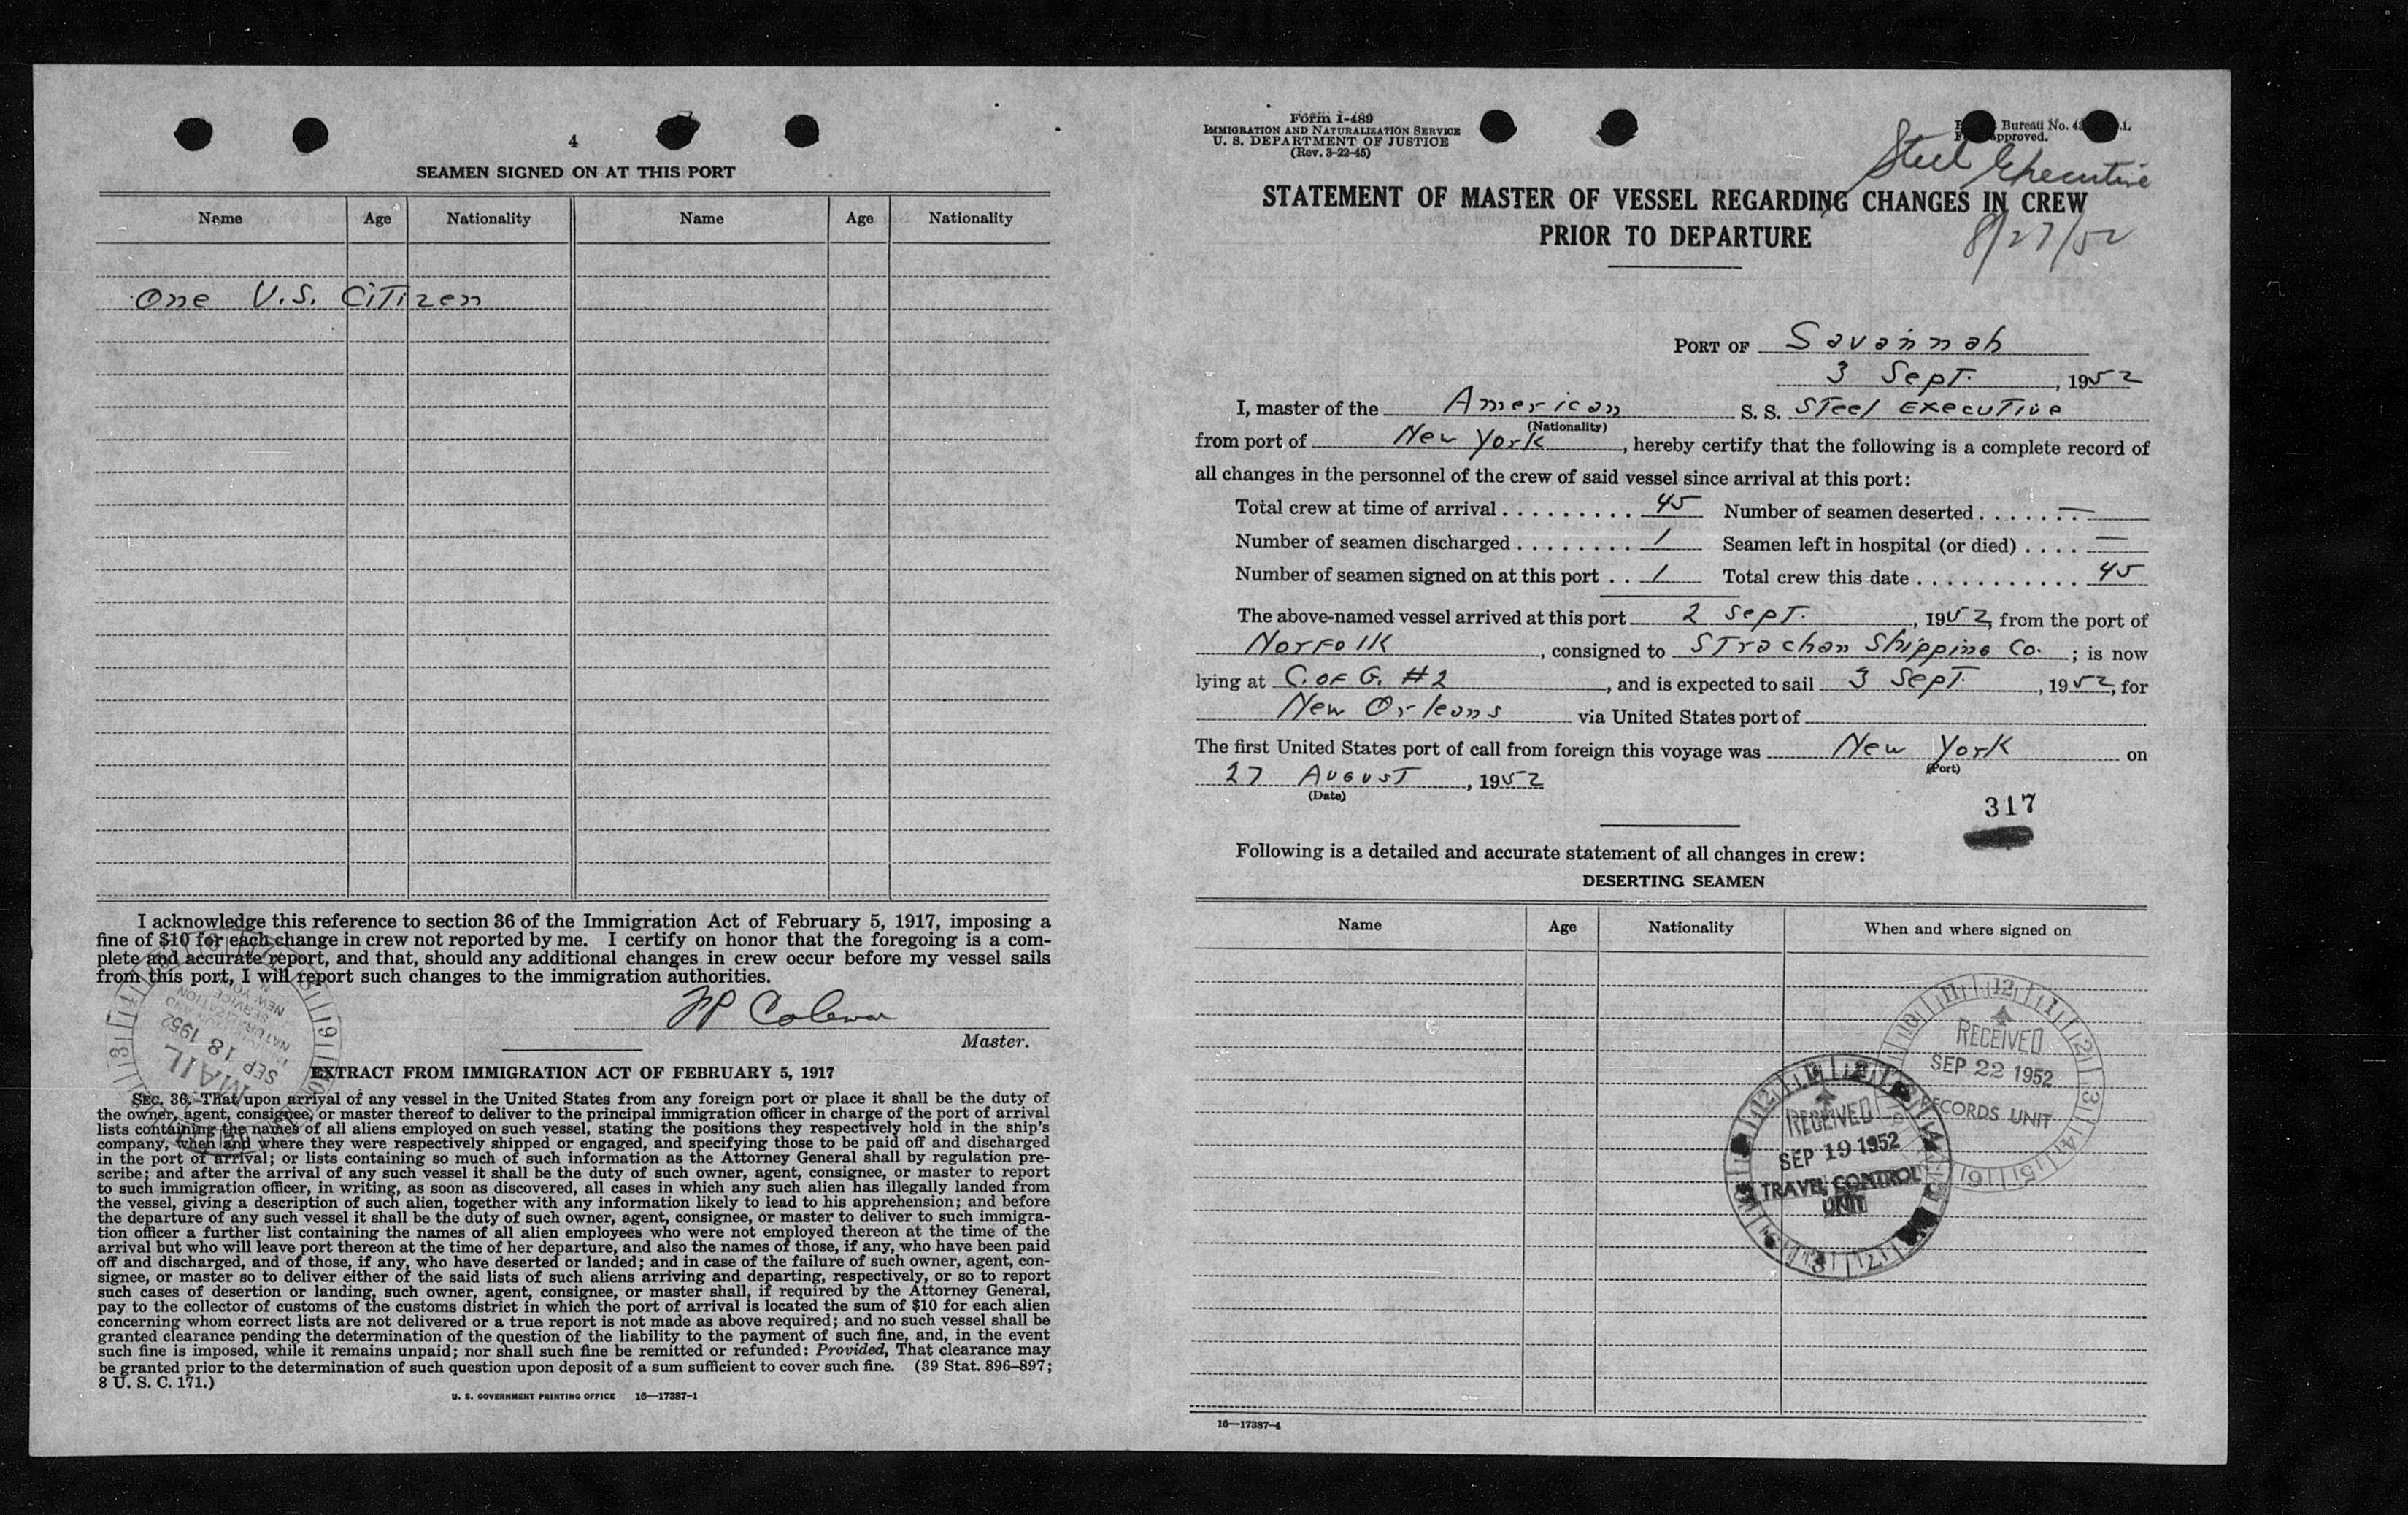 4
SEAMEN SIGNED ON AT THIS PORT
Name Age Nationality Name Age Nationality
One U.S. Citizen
I acknowledge this reference to section 36 of the Immigration Act of February 5, 1917, imposing a
fine of $10 for each change in crew not reported by me. I certify on honor that the foregoing is a com-
plete and accurate report, and that, should any additional changes in crew occur before my vessel sails
from this port, I will report such changes to the immigration authorities.
Master.
MAIL
SEP 18 1952
NATURALIZATION
SERVICE
NEW YORK
EXTRACT FROM IMMIGRATION ACT OF FEBRUARY 5, 1917
SEC. 36. That upon arrival of any vessel in the United States from any foreign port or place it shall be the duty of
the owner, agent, consignee, or master thereof to deliver to the principal immigration officer in charge of the port of arrival
lists containing the names of all aliens employed on such vessel, stating the positions they respectively hold in the ship's
company, when and where they were respectively shipped or engaged, and specifying those to be paid off and discharged
in the port of arrival; or lists containing so much of such information as the Attorney General shall by regulation pre-
scribe; and after the arrival of any such vessel it shall be the duty of such owner, agent, consignee, or master to report
to such immigration officer, in writing, as soon as discovered, all cases in which any such alien has illegally landed from
the vessel, giving a description of such alien, together with any information likely to lead to his apprehension; and before
the departure of any such vessel it shall be the duty of such owner, agent, consignee, or master to deliver to such immigra-
tion officer a further list containing the names of all alien employees who were not employed thereon at the time of the
arrival but who will leave port thereon at the time of her departure, and also the names of those, if any, who have been paid
off and discharged, and of those, if any, who have deserted or landed; and in case of the failure of such owner, agent, con-
signee, or master so to deliver either of the said lists of such aliens arriving and departing, respectively, or so to report
such cases of desertion or landing, such owner, agent, consignee, or master shall, if required by the Attorney General,
pay to the collector of customs of the customs district in which the port of arrival is located the sum of $10 for each alien
concerning whom correct lists are not delivered or a true report is not made as above required; and no such vessel shall be
granted clearance pending the determination of the question of the liability to the payment of such fine, and, in the event
such fine is imposed, while it remains unpaid; nor shall such fine be remitted or refunded: Provided, That clearance may
be granted prior to the determination of such question upon deposit of a sum sufficient to cover such fine. (39 Stat. 896–897;
8 U. S. C. 171.)
U. S. GOVERNMENT PRINTING OFFICE 16—17387-1
Form I-489
IMMIGRATION AND NATURALIZATION SERVICE
U. S. DEPARTMENT OF JUSTICE
(Rev. 3-22-45)
Bureau No.
approved.
Steel Executive
8/27/52
STATEMENT OF MASTER OF VESSEL REGARDING CHANGES IN CREW
PRIOR TO DEPARTURE
PORT OF Savannah
3 Sept., 1952
I, master of the American S. S. Steel Executive
(Nationality)
from port of New York, hereby certify that the following is a complete record of
all changes in the personnel of the crew of said vessel since arrival at this port:
Total crew at time of arrival . . . . . . . . . 45 Number of seamen deserted . . . . . . . —
Number of seamen discharged . . . . . . . . 1 Seamen left in hospital (or died) . . . . —
Number of seamen signed on at this port . . 1 Total crew this date . . . . . . . . . . . 45
The above-named vessel arrived at this port 2 Sept., 1952, from the port of
Norfolk, consigned to Strachan Shipping Co.; is now
lying at C. of G. #2, and is expected to sail 3 Sept., 1952, for
New Orleans via United States port of
The first United States port of call from foreign this voyage was New York on
(Port)
27 August, 1952
(Date)
317
Following is a detailed and accurate statement of all changes in crew:
DESERTING SEAMEN
Name Age Nationality When and where signed on
RECEIVED
SEP 22 1952
RECORDS UNIT
RECEIVED
SEP 19 1952
TRAVEL CONTROL
UNIT
16—17387-4